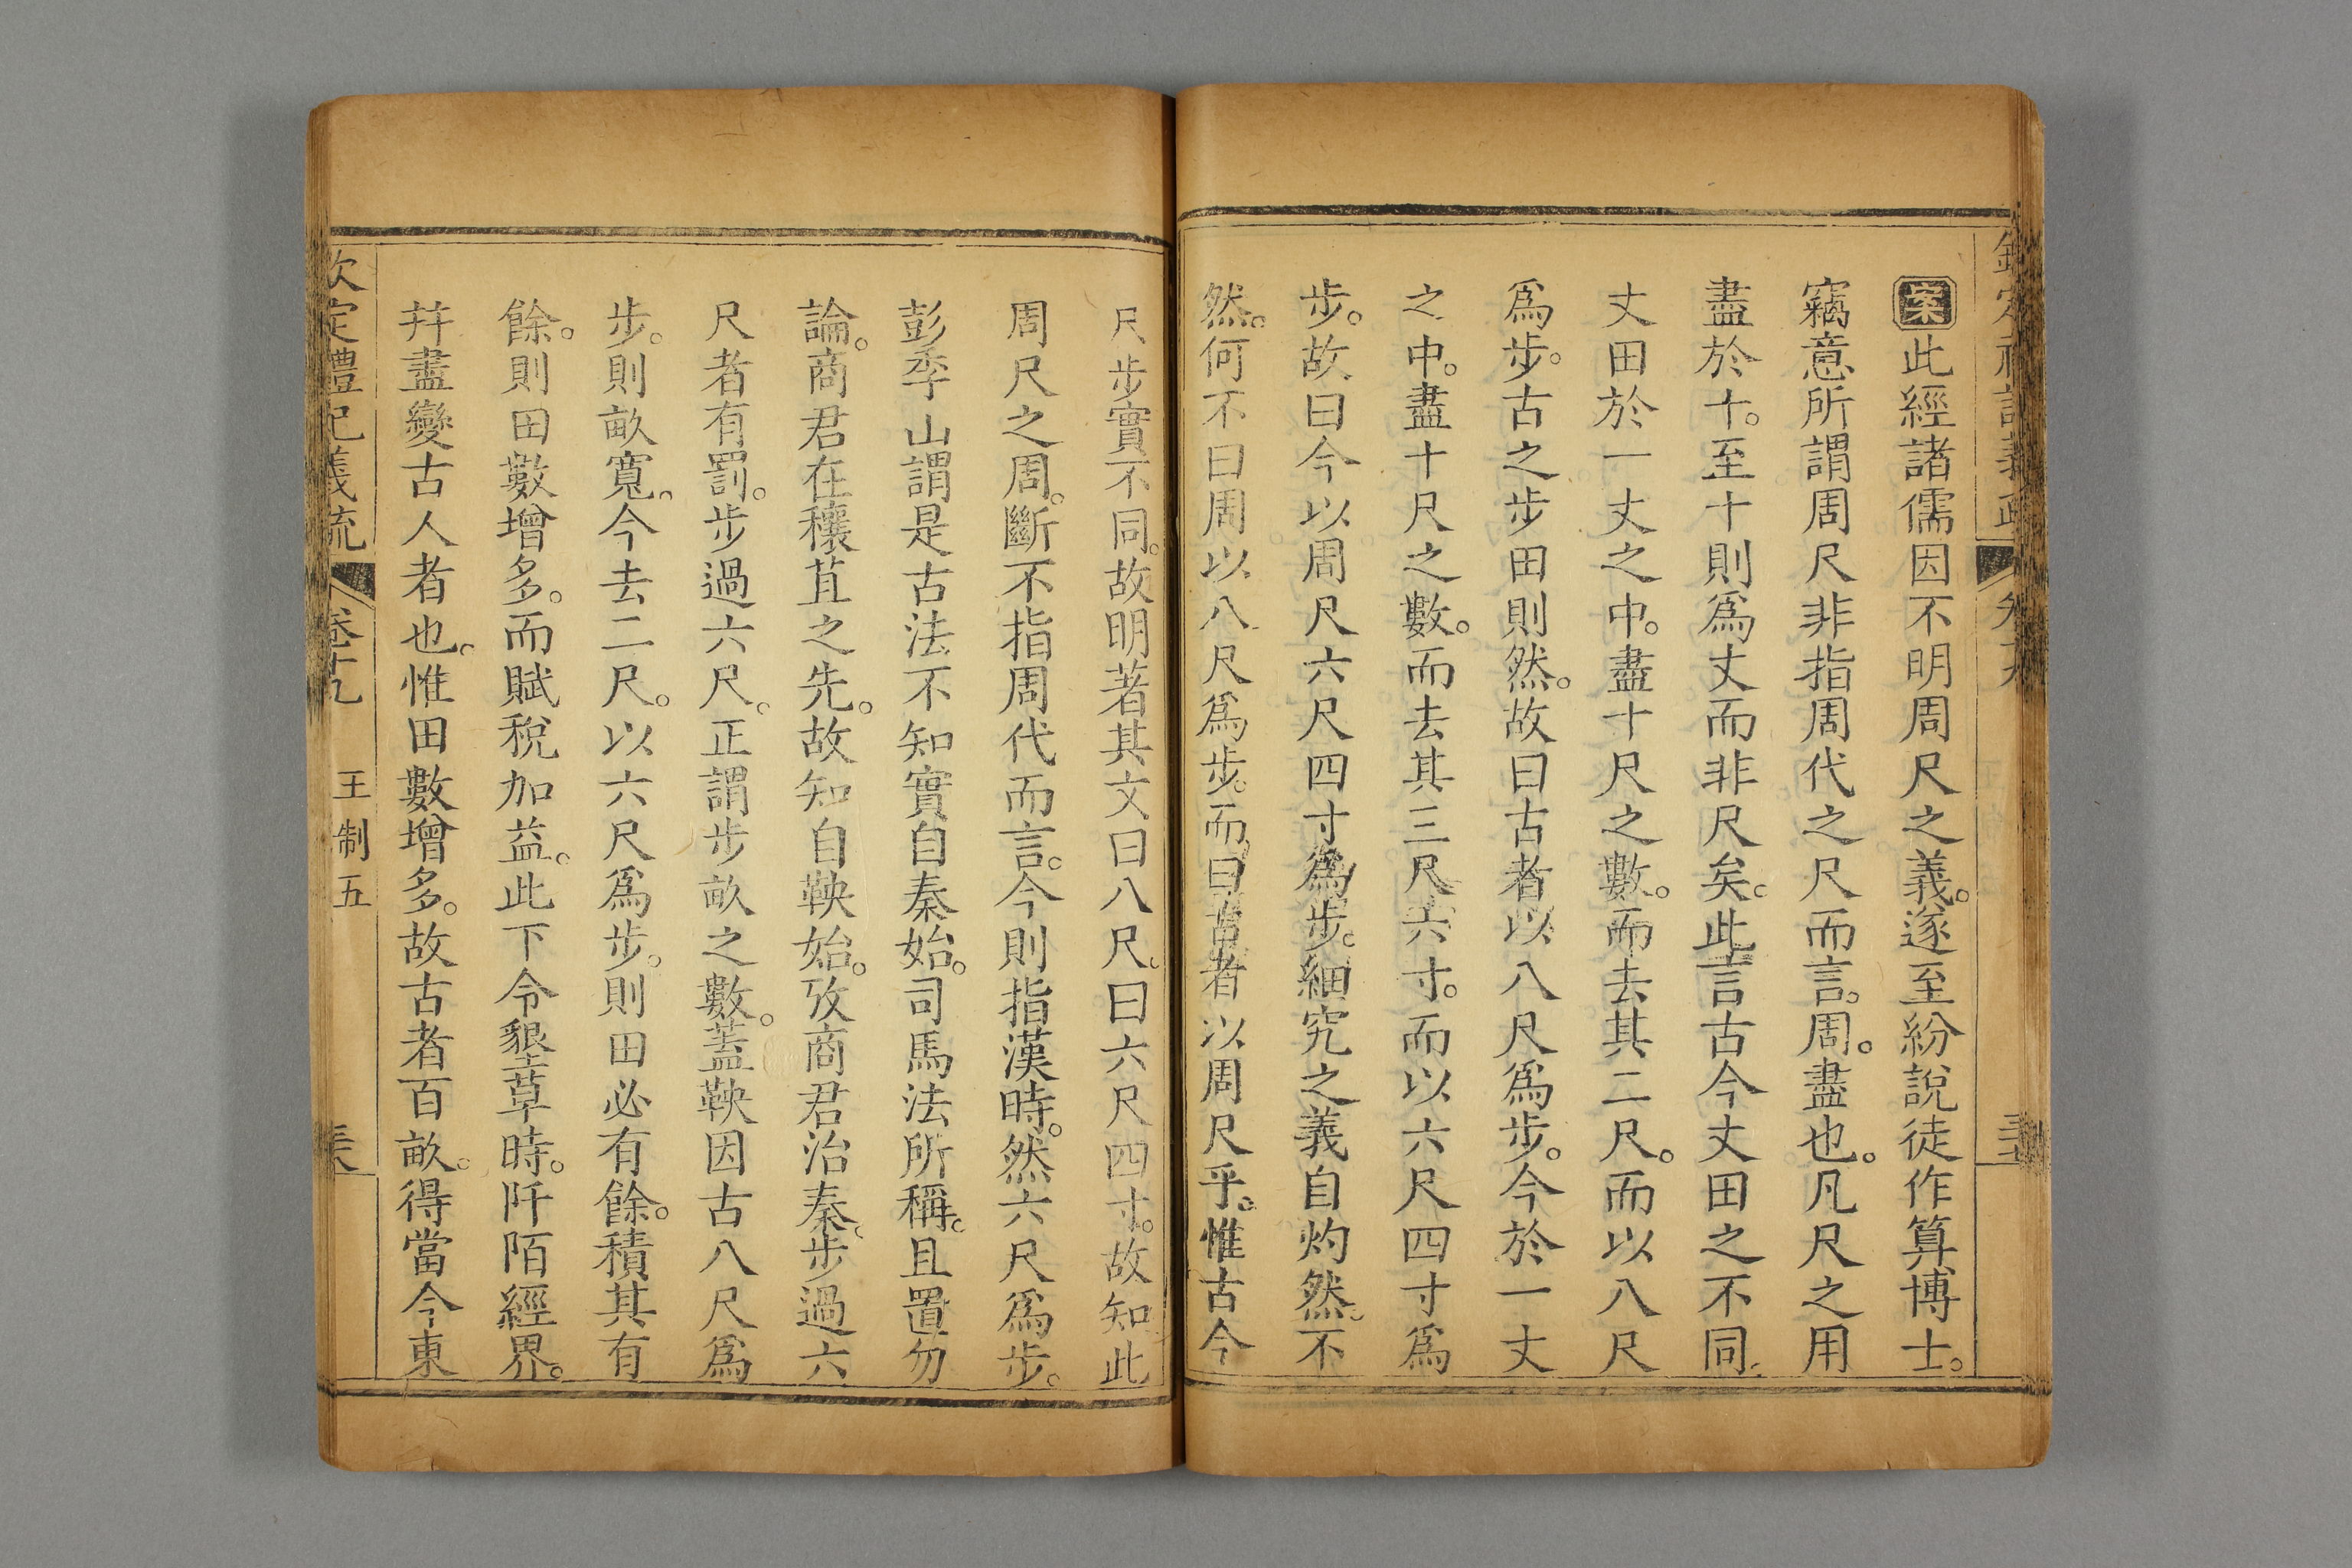 案此經諸儒因不明周尺之義。遂至紛說徒作算博士。
竊意所謂周尺非指周代之尺而言。周。盡也。凡尺之用
盡於十。至十則爲丈而非尺矣。此言古今丈田之不同。
丈田於一丈之中。盡十尺之數。而去其二尺。而以八尺
爲步。古之步田則然。故曰古者以八尺爲步。今於一丈
之中。盡十尺之數。而去其三尺六寸。而以六尺四寸爲
步。故曰今以周尺六尺四寸爲步。細究之義自灼然。不
然。何不曰周以八尺爲步。而曰古者以周尺乎。惟古今
尺步實不同。故明著其文曰八尺。曰六尺四寸。故知此
周尺之周。斷不指周代而言。今則指漢時。然六尺爲步。
彭季山謂是古法。不知實自秦始。司馬法所稱。且置勿
論。商君在穰苴之先。故知自鞅始。攷商君治秦。步過六
尺者有罰。步過六尺。正謂步畝之數。蓋鞅因古八尺爲
步。則畝寬。今去二尺。以六尺爲步。則田必有餘。積其有
餘。則田數增多。而賦稅加益。此下令墾草時。阡陌經界。
并盡變古人者也。惟田數增多。故古者百畝。得當今東
欽定禮記義疏 卷十九 王制五